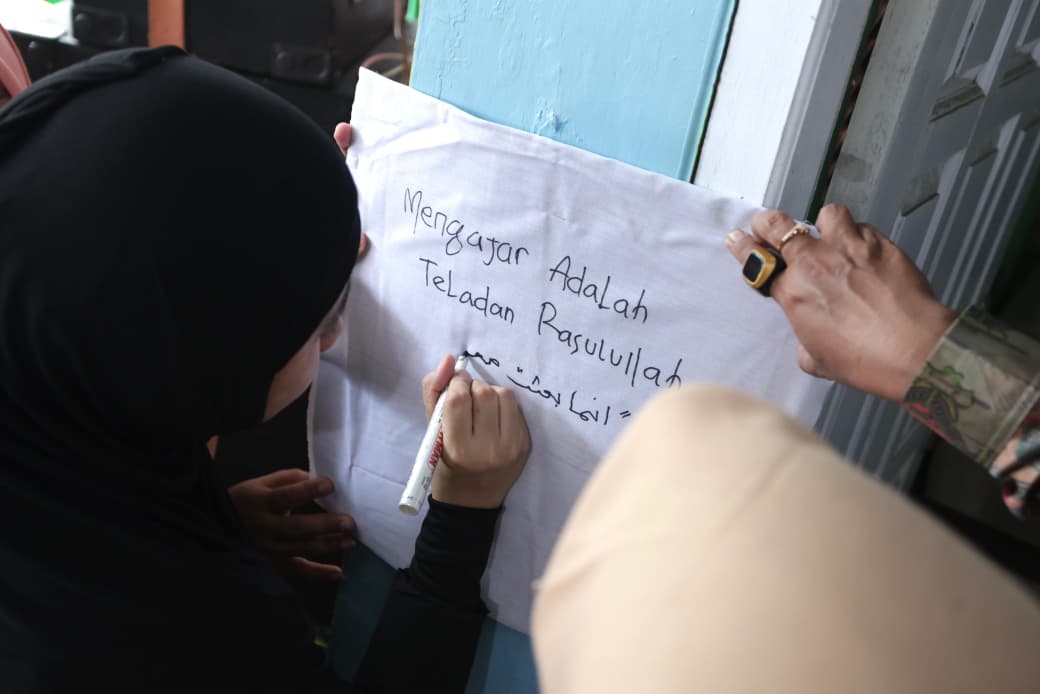 Mengajar Adalah
Teladan Rasulullah
"انما بعثت مع